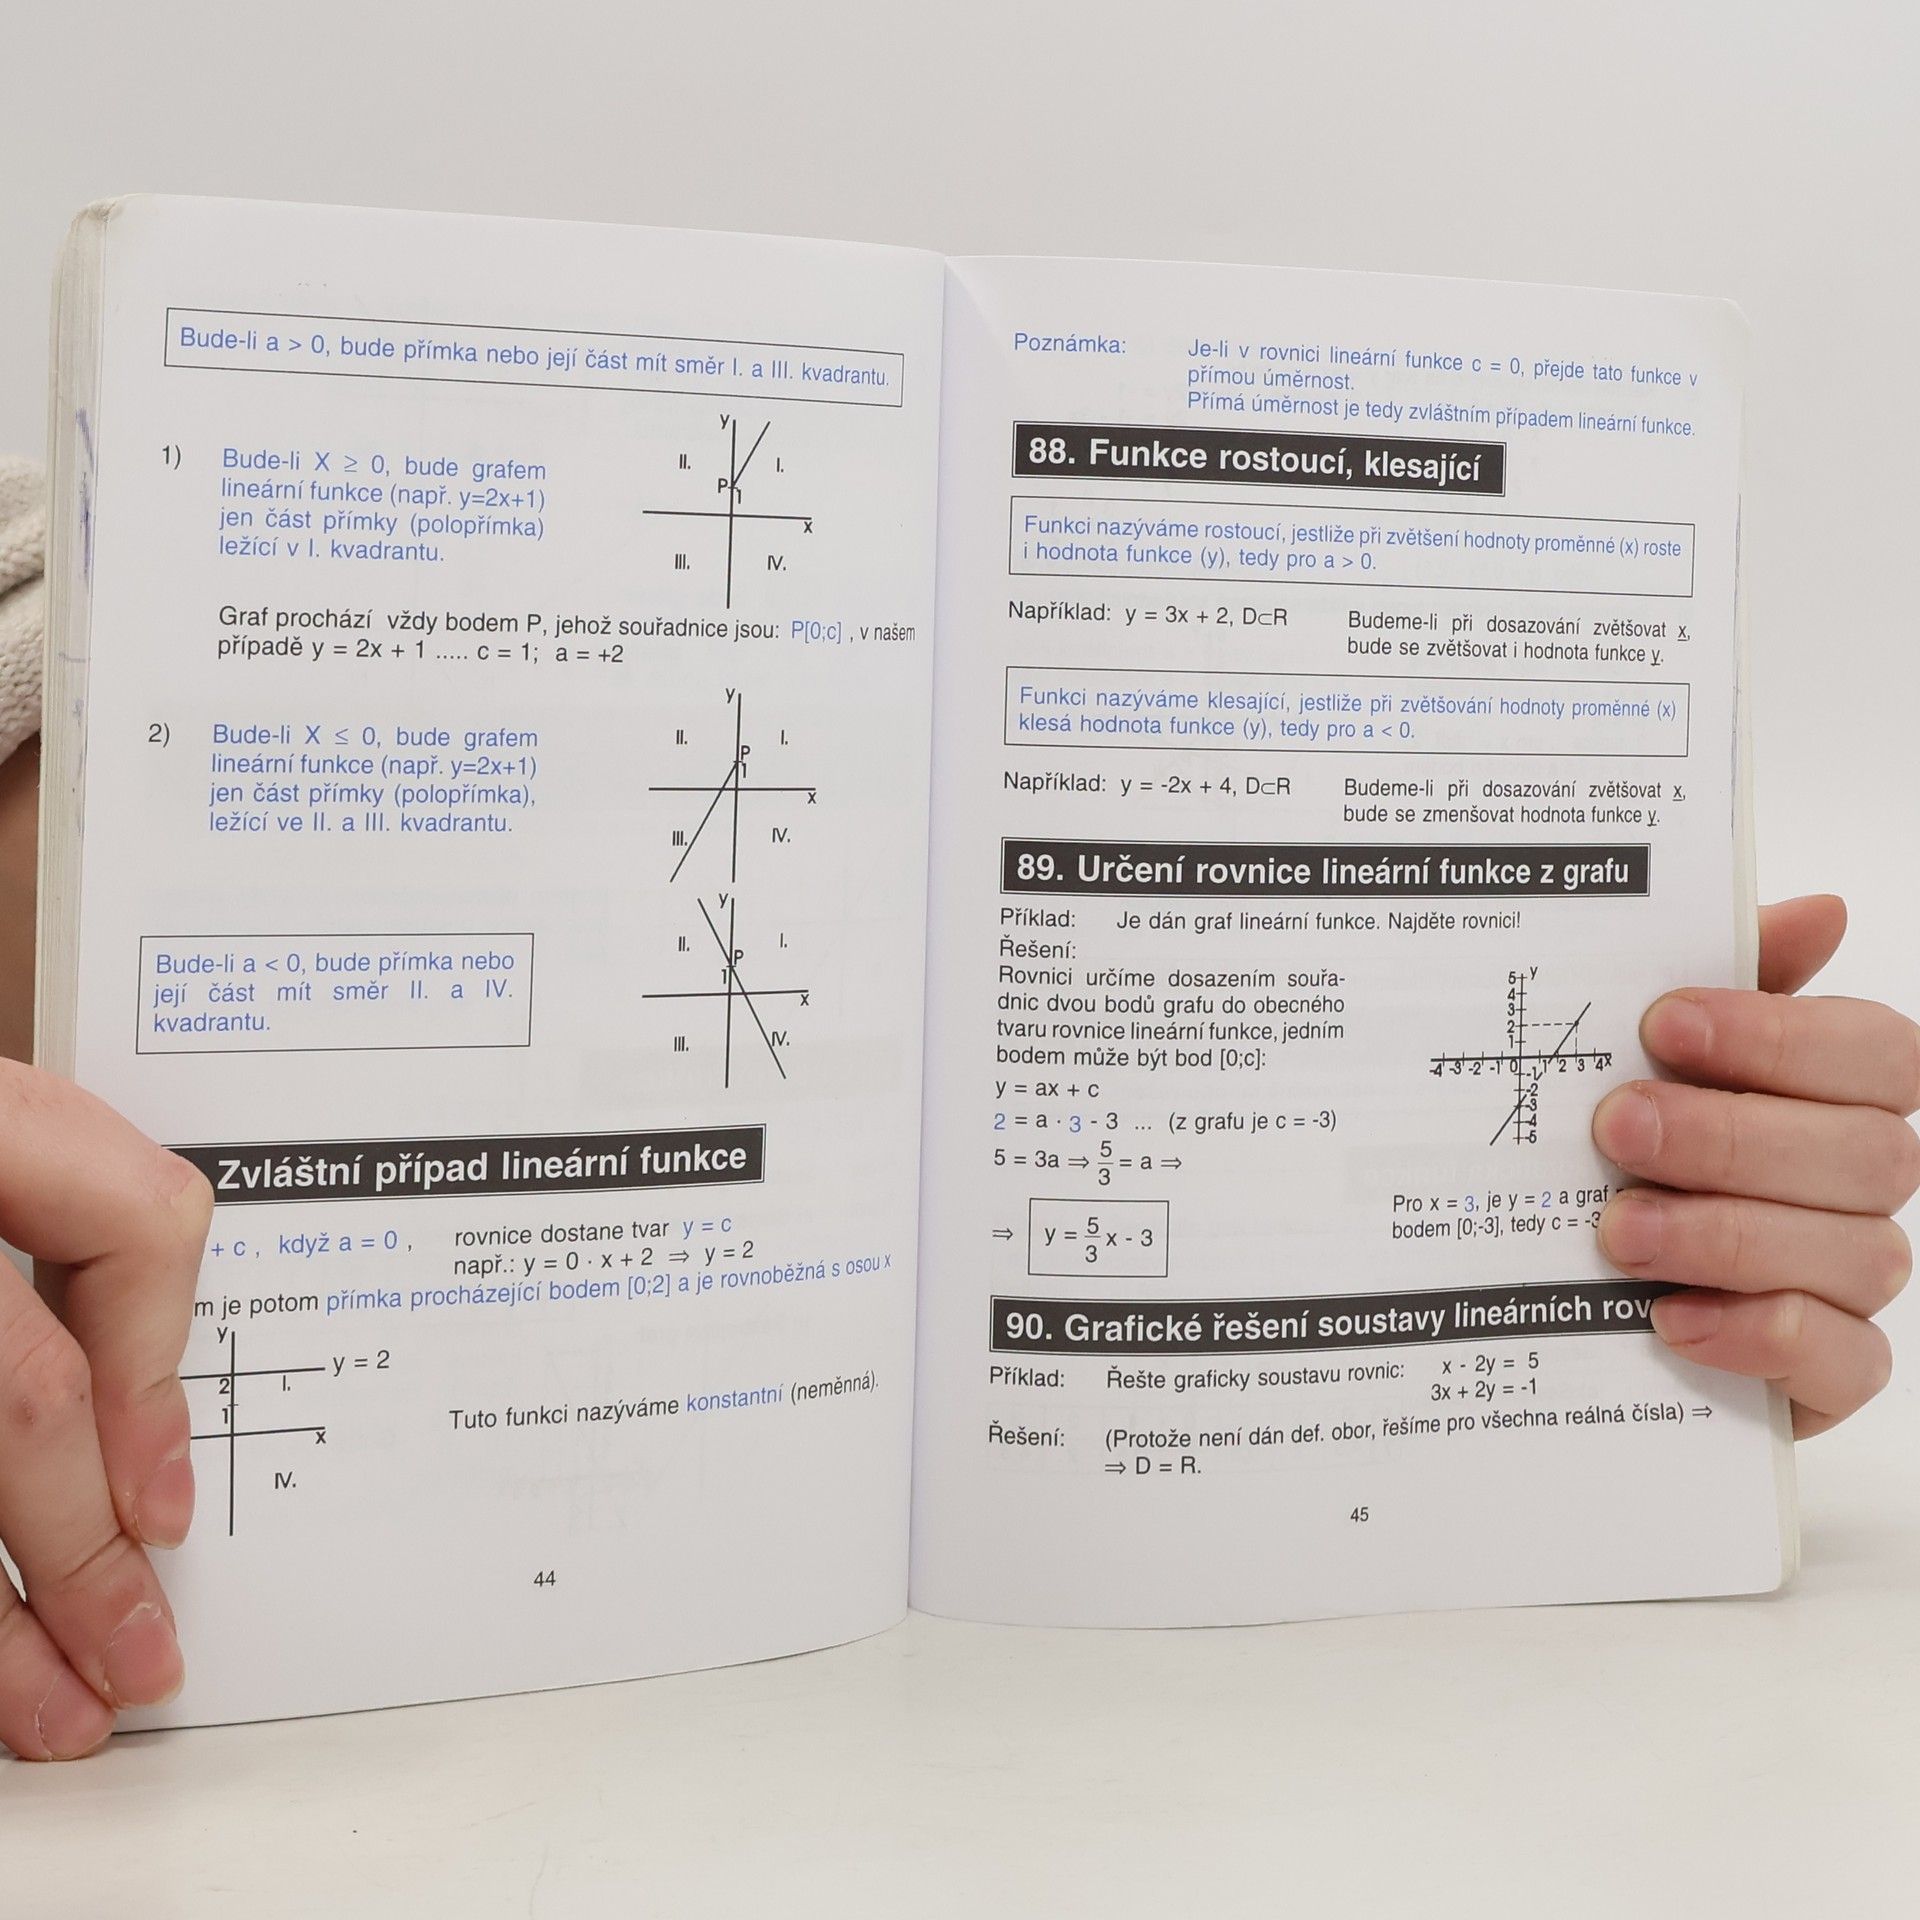 Bude-li a > 0, bude přímka nebo její část mít směr I. a III. kvadrantu.
1) Bude-li X ≥ 0, bude grafem
lineární funkce (např. y=2x+1)
jen část přímky (polopřímka)
ležící v I. kvadrantu.
y
II. I.
P 1
x
III. IV.
Graf prochází vždy bodem P, jehož souřadnice jsou: P[0;c] , v našem
případě y = 2x + 1 ..... c = 1; a = +2
2) Bude-li X ≤ 0, bude grafem
lineární funkce (např. y=2x+1)
jen část přímky (polopřímka),
ležící ve II. a III. kvadrantu.
y
II. I.
P
1
x
III. IV.
Bude-li a < 0, bude přímka nebo
její část mít směr II. a IV.
kvadrantu.
y
II. I.
P
1
x
III. IV.
Zvláštní případ lineární funkce
+ c , když a = 0 , rovnice dostane tvar y = c
např.: y = 0 · x + 2 ⇒ y = 2
m je potom přímka procházející bodem [0;2] a je rovnoběžná s osou x
y
y = 2
2 I.
1
x
IV.
Tuto funkci nazýváme konstantní (neměnná).
44
Poznámka: Je-li v rovnici lineární funkce c = 0, přejde tato funkce v
přímou úměrnost.
Přímá úměrnost je tedy zvláštním případem lineární funkce.
88. Funkce rostoucí, klesající
Funkci nazýváme rostoucí, jestliže při zvětšení hodnoty proměnné (x) roste
i hodnota funkce (y), tedy pro a > 0.
Například: y = 3x + 2, D⊂R Budeme-li při dosazování zvětšovat x,
bude se zvětšovat i hodnota funkce y.
Funkci nazýváme klesající, jestliže při zvětšování hodnoty proměnné (x)
klesá hodnota funkce (y), tedy pro a < 0.
Například: y = -2x + 4, D⊂R Budeme-li při dosazování zvětšovat x,
bude se zmenšovat hodnota funkce y.
89. Určení rovnice lineární funkce z grafu
Příklad: Je dán graf lineární funkce. Najděte rovnici!
Řešení:
Rovnici určíme dosazením souřa-
dnic dvou bodů grafu do obecného
tvaru rovnice lineární funkce, jedním
bodem může být bod [0;c]:
y = ax + c
2 = a · 3 - 3 ... (z grafu je c = -3)
5 = 3a ⇒ 5/3 = a ⇒
⇒ y = 5/3 x - 3
5 y
4
3
2
1
-4 -3 -2 -1 0 1 2 3 4 x
-1
-2
-3
-4
-5
Pro x = 3, je y = 2 a graf
bodem [0;-3], tedy c = -3
90. Grafické řešení soustavy lineárních rov
Příklad: Řešte graficky soustavu rovnic: x - 2y = 5
3x + 2y = -1
Řešení: (Protože není dán def. obor, řešíme pro všechna reálná čísla) ⇒
⇒ D = R.
45